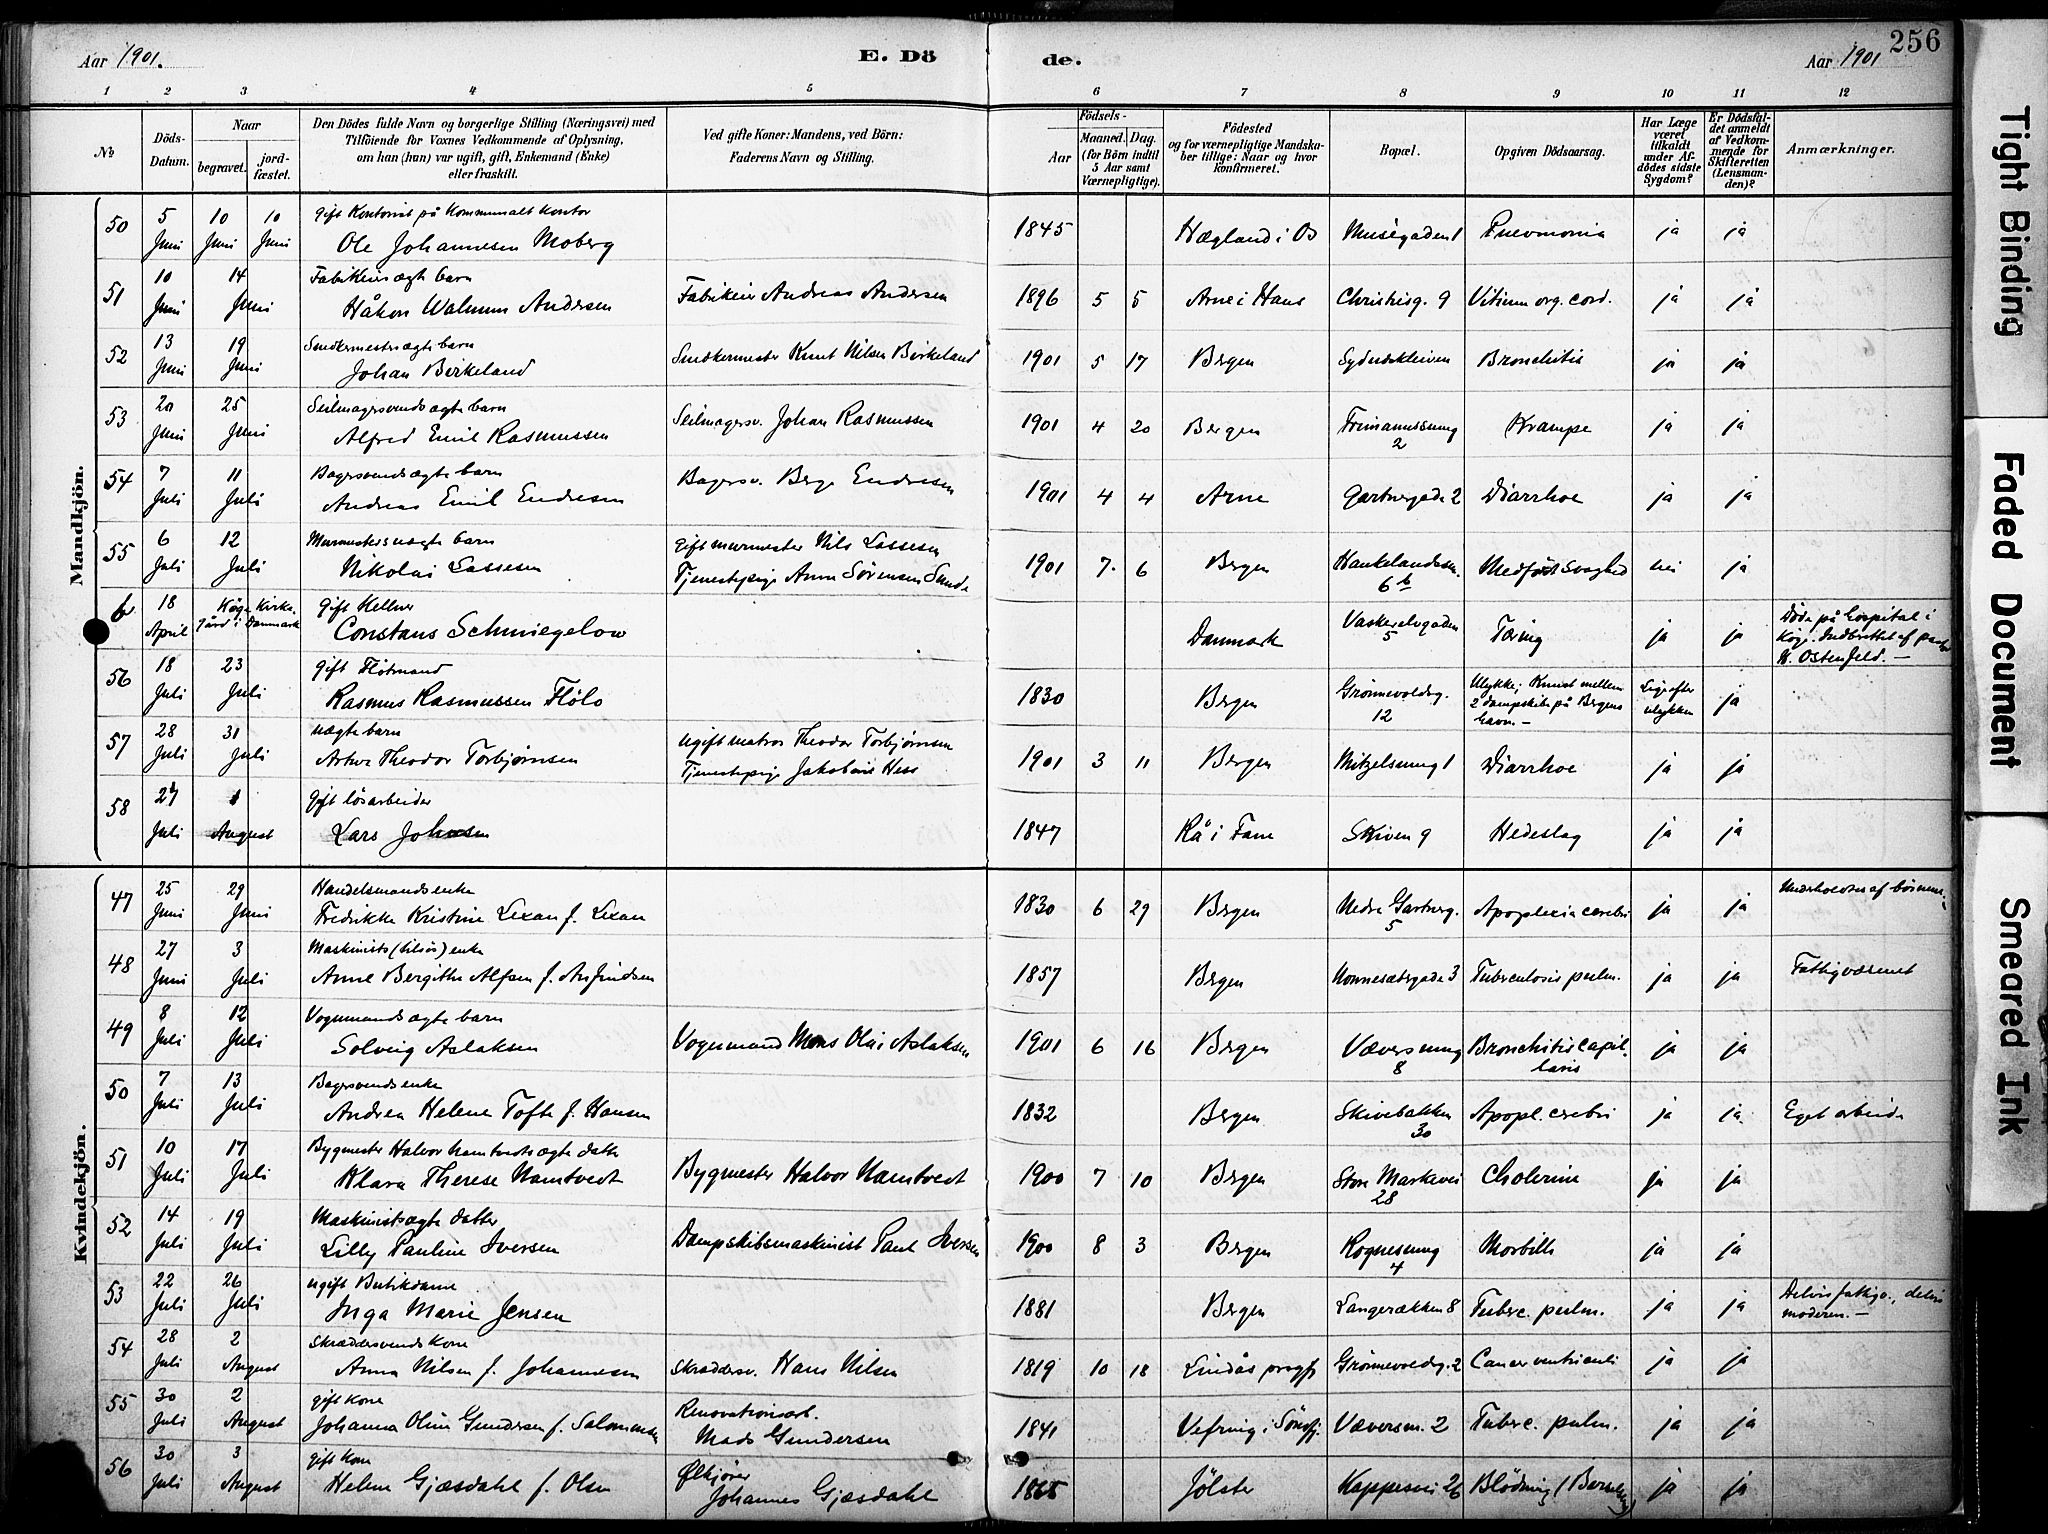 256
Aar 1901. E. Dö
de. Aar 1901
1 2 3 4 5 6 7 8 9 10 11 12
№
Döds-Datum.
Naar
begravet.
jord-fæstet.
Den Dödes fulde Navn og borgerlige Stilling (Næringsvei) med
Tilföiende for Voxnes Vedkommende af Oplysning,
om han (hun) var ugift, gift, Enkemand (Enke)
eller fraskilt.
Ved gifte Koner: Mandens, ved Börn:
Faderens Navn og Stilling.
Födsels-
Aar
Maaned. Dag.
(for Börn indtil
5 Aar samt
Værnepligtige).
Födested
og for værnepligtige Mandska-
ber tillige: Naar og hvor
konfirmeret.
Bopæl.
Opgiven Dödsaarsag.
Har Læge
været
tilkaldt
under Af-
dödes sidste
Sygdom?
Er Dödsfal-
det anmeldt
af Vedkom-
mende for
Skifteretten
(Lensman-
den)?
Anmærkninger.
Mandkjön.
50 5 Juni 10 Juni 10 Juni gift Kontorist på Kommunalt Kontor
Ole Johannesen Moberg 1845 Hægland i Os Muségaden 1 Pneumonia ja ja
51 10 Juni 14 Juni Fabrikeiers ægte barn
Håkon Walmum Andersen Fabrikeier Andreas Andersen 1896 5 5 Arne i Haus Christiesg. 9 Vitium org. cord. ja ja
52 13 Juni 19 Juni Snedkermesters ægte barn
Johan Birkeland Snedkermester Knut Nilsen Birkeland 1901 5 17 Bergen Sydneskleiven Bronchitis ja ja
53 20 Juni 25 Juni Seilmagersvends ægte barn
Alfred Emil Rasmussen Seilmagersv. Johan Rasmussen 1901 4 20 Bergen 2 Krampe ja ja
54 7 Juli 11 Juli Bagersvends ægte barn
Andreas Emil Endresen Bagersv. Berge Endresen 1901 4 4 Arne Gartnergade 2 Diarrhoe ja ja
55 6 Juli 12 Juli Murmesters uægte barn
Nikolai Lassesen gift murmester Nils Lassesen
Tjenestepige Anna Sørensen Sunde 1901 7. 6 Bergen Haukelandsv. 6b Medfødt Svaghed nei ja
b 18 April Køge Kirkegård i Danmark gift Kellner
Constans Schmiegelow Danmark 5 Tæring ja ja Døde på hospital i
Køge. Indberettet af pastor
H. Ostenfeld. —
56 18 Juli 23 Juli gift Fløtmand
Rasmus Rasmussen Flölo 1830 Bergen Grønnevoldsg. 12 Ulykke; Knust mellem
2 dampskibe på Bergens
havn. — Lige efter ulykken ja
57 28 Juli 31 Juli uægte barn
Arthur Theodor Torbjørnsen ugift matros Theodor Torbjørnsen
Tjenestepige Jakobine Hess 1901 3 11 Bergen Mitzelsmug 1 Diarrhoe ja ja
58 27 Juli 1 August gift løsarbeider
Lars Johnsen 1847 Rå i Fane Skiven 9 Hedeslag ja ja
Kvindekjön.
47 25 Juni 29 Juni Handelsmands enke
Fredrikke Kristine Lexau f. Lexau 1830 6 29 Bergen Nedre Gartnerg. 5 Apoplexia cerebri ja ja Underholdtes af børnene.
48 27 Juni 3 Juli Maskinists (tilsøs) enke
Anne Bergitte Alfsen f. Arfindsen 1857 Bergen Nonnesætergade 3 Tuberculosis pulm. ja ja Fattigvæsenet
49 8 Juli 12 Juli Vognmands ægte barn
Solveig Aslaksen Vognmand Mons Olai Aslaksen 1901 6 16 Bergen Væversmug 8 Bronchitis capil-
laris ja ja
50 7 Juli 13 Juli Bagersvends enke
Andrea Helene Tofte f. Hansen 1832 Bergen Skivebakken 30 Apopl. cerebri ja ja Eget arbeide
51 10 Juli 17 Juli Bygmester Halvor Namtvedts ægte datter
Klara Therese Namtvedt Bygmester Halvor Namtvedt 1900 7 10 Bergen Store Markevei 28 Cholerine ja ja
52 14 Juli 19 Juli Maskinists ægte datter
Lilly Pauline Iversen Dampskibsmaskinist Paul Iversen 1900 8 3 Bergen Rognesmug 4 Morbilli ja ja
53 22 Juli 26 Juli ugift Butikdame
Inga Marie Jensen 1881 Bergen Langerækken 8 Tuberc. pulm. ja ja Delvis fattigv., delvis
moderen. —
54 28 Juli 2 August Skræddersvends Kone
Anna Nilsen f. Johannesen Skræddersv. Hans Nilsen 1819 10 18 Lindås prgj. Grønnevoldsg. 2 Cancer ventriculi ja ja
55 30 Juli 2 August gift Kone
Johanna Oline Gundersen f. Salomonsen Renovationsarb.
Mads Gundersen 1841 Vefring i Søndfj. Væversm. 2 Tuberc. pulm. ja ja
56 30 Juli 3 August gift Kone
Helene Gjæsdahl f. Olsen Ølkjører
Johannes Gjæsdahl 1865 Jölster Kappesvei 26 Blödning (Barselseng) ja ja
Tight Binding
Faded Document
Smeared Ink